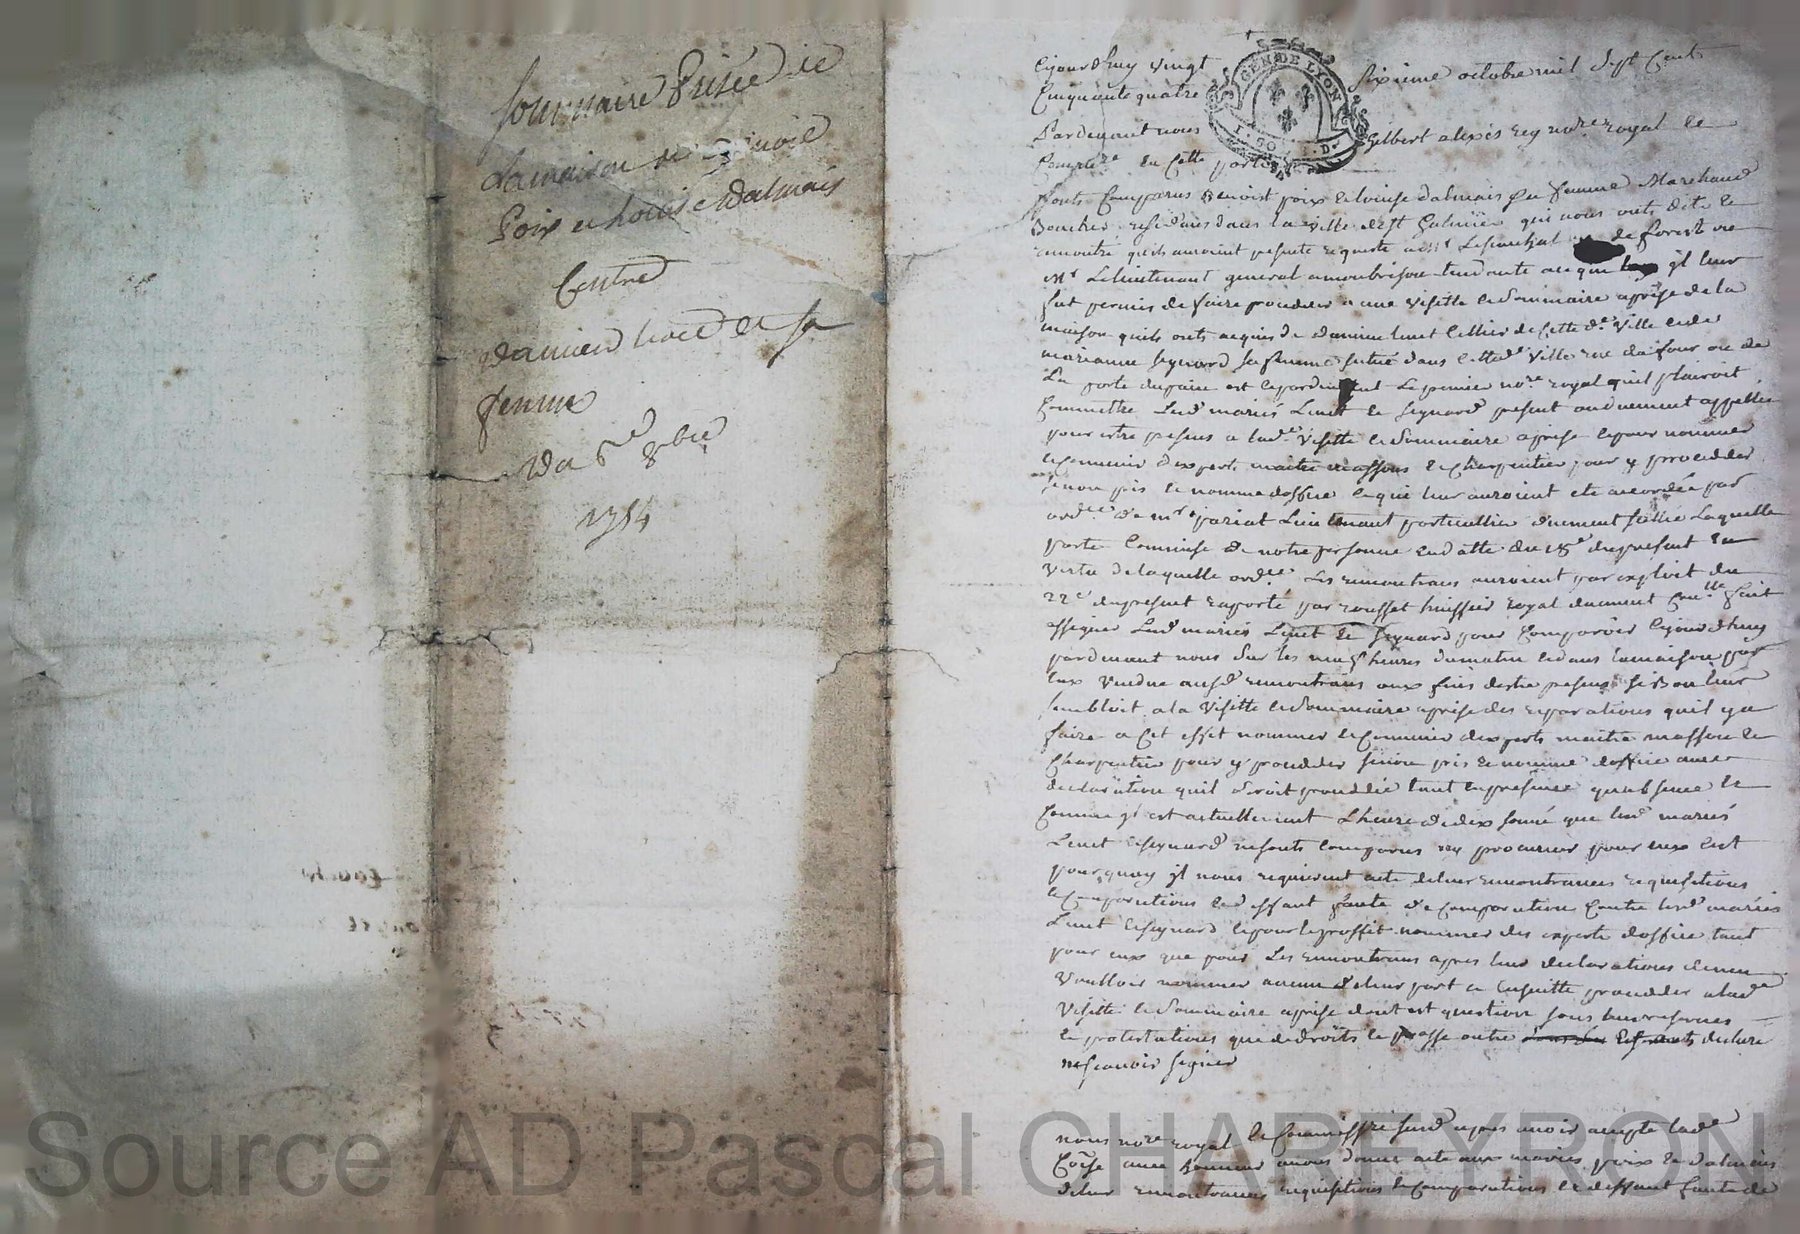 Sommaire Prisée de
La maison de Benoit
Poix et Louise Dalmais
Contre
Damien Linet et sa
femme
Du 26e 8bre
1754
Cejourdhuy vingt sixieme octobre mil sept Cent
Cinquante quatre
GEN DE LYON
Pardevant nous Gilbert alexis Rey nore royal et
Commre en Cette partie
sonts Comparus Benoist poix et louise dalmais sa femme Marchand
Boucher residans dans la ville de st Galmier qui nous onts dit et
remontré quils auroient presenté requeste a Le senechal de forest ou
Mr Le lieutenant general a montbrison tendante a ce que il leur
fut permis de faire proceder a une visitte et sommaire aprise de la
maison quils onts acquis de damien linet cellier de Cette de ville et de
marianne seynard sa femme situé dans Cette de ville rue du four ou de
La porte et pardevant Le premier nore royal quil plairoit
Commettre Lesd mariés Linet et seynard present ou duement appellés
pour estre presens a lade visitte et sommaire aprise et pour nommer
et Convenir dexperts maitre massons et Charpentier pour y proceder
sinon pris et nommé doffice ce qui leur auroient ete accordée par
ordce de mr pariat Lieutenant particullier duement sellée Laquelle
porte Commise de notre personne en datte du 18e du present En
vertu de laquelle ordce Les remontrans auroient par exploit du
22e du present raporté par rousset huissier royal duement Conlle fait
assigner Lesd mariés Linet et seynard pour Comparoir cejourdhuy
pardevant nous sur les neuf heures du matin et dans la maison par
eux vendue ausd remontrans aux fins destre presens si Bon leur
sembloit a la visitte et sommaire aprise des reparations quil y a
faire a Cet effet nommer et Convenir dexperts maitre masson et
Charpentier pour y proceder sinon pris et nommé doffice avec
declaration quil seroit procedée tant en presence quabsence et
Comme il est actuellement Lheure de dix sonné que lesd mariés
Linet et seynard ne sonts Comparus ny procureur pour eux Cest
pourquoy il nous requierent acte de leur remontrances requisitions
et Comparutions et deffaut faute de Comparution Contre lesd mariés
Linet et seynard et pour le proffit nommer des experts doffice tant
pour eux que pour Les remontrans apres leur declarations de nen
voulloir nommer aucun de leur part et Ensuitte proceder a lade
visitte et sommaire aprise dont est question sous leurs reserves
et protestations que de droits et Lesse outre declaré
ne scavoir signer
nous nore royal et Commissre susd apres avoir accepté lade
Coïse avec honneur avons donné acte aux mariés poix et dalmais
de leur remontrances requisitions et Comparutions et deffaut faute de
Source AD Pascal CHAREYRON